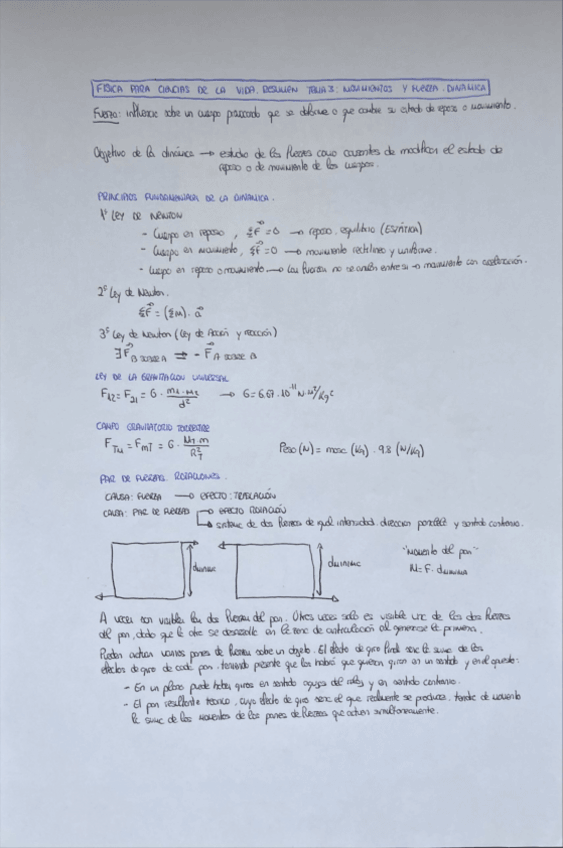 FISICA PARA CIENCIAS DE LA VIDA. RESUMEN TEMA 3: MOVIMIENTOS Y FUERZA. DINAMICA
Fuerza: influencia sobre un cuerpo provocando que se deforme o que cambie su estado de reposo o movimiento.
Objetivo de la dinámica → estudio de las fuerzas como causantes de modificar el estado de
reposo o de movimiento de los cuerpos.
PRINCIPIOS FUNDAMENTALES DE LA DINAMICA.
1ª LEY DE NEWTON
- Cuerpo en reposo, ΣF⃗ = 0 → reposo. equilibrio (ESTÁTICA)
- Cuerpo en movimiento, ΣF⃗ = 0 → movimiento rectilíneo y uniforme.
- Cuerpo en reposo o movimiento → Las fuerzas no se anulan entre si → movimiento con aceleración.
2ª Ley de Newton.
ΣF⃗ = (Σm) · a⃗
3ª Ley de Newton (Ley de Acción y reacción)
∃ F⃗ B SOBRE A ⇒ - F⃗ A SOBRE B
LEY DE LA GRAVITACION UNIVERSAL
F12 = F21 = G · m1 · m2 / d² → G = 6.67 · 10⁻¹¹ N·m²/Kg²
CAMPO GRAVITATORIO TERRESTRE
F Tm = F mT = G · MT · m / R²T Peso (N) = masa (Kg) · 9.8 (N/Kg)
PAR DE FUERZAS. ROTACIONES.
CAUSA: FUERZA → EFECTO: TRASLACIÓN
CAUSA: PAR DE FUERZAS → EFECTO ROTACIÓN
→ sistema de dos fuerzas de igual intensidad. direccion paralela y sentido contrario.
dmínima
dmínima
"Momento del par"
M = F · dmínima
A veces son visibles las dos fuerzas del par. Otras veces solo es visible una de las dos fuerzas
del par, dado que la otra se desarrolla en la zona de al generarse la primera.
Pueden actuar varios pares de fuerzas sobre un objeto. El efecto de giro final será la suma de los
efectos de giro de cada par. teniendo presente que los habrá que quieran girar en un sentido y en el opuesto:
- En un plano puede haber giros en sentido agujas del reloj y en sentido contrario.
- El par resultante teórico, cuyo efecto de giro será el que realmente se produzca, tendrá de momento
la suma de los momentos de los pares de fuerzas que actúen simultaneamente.